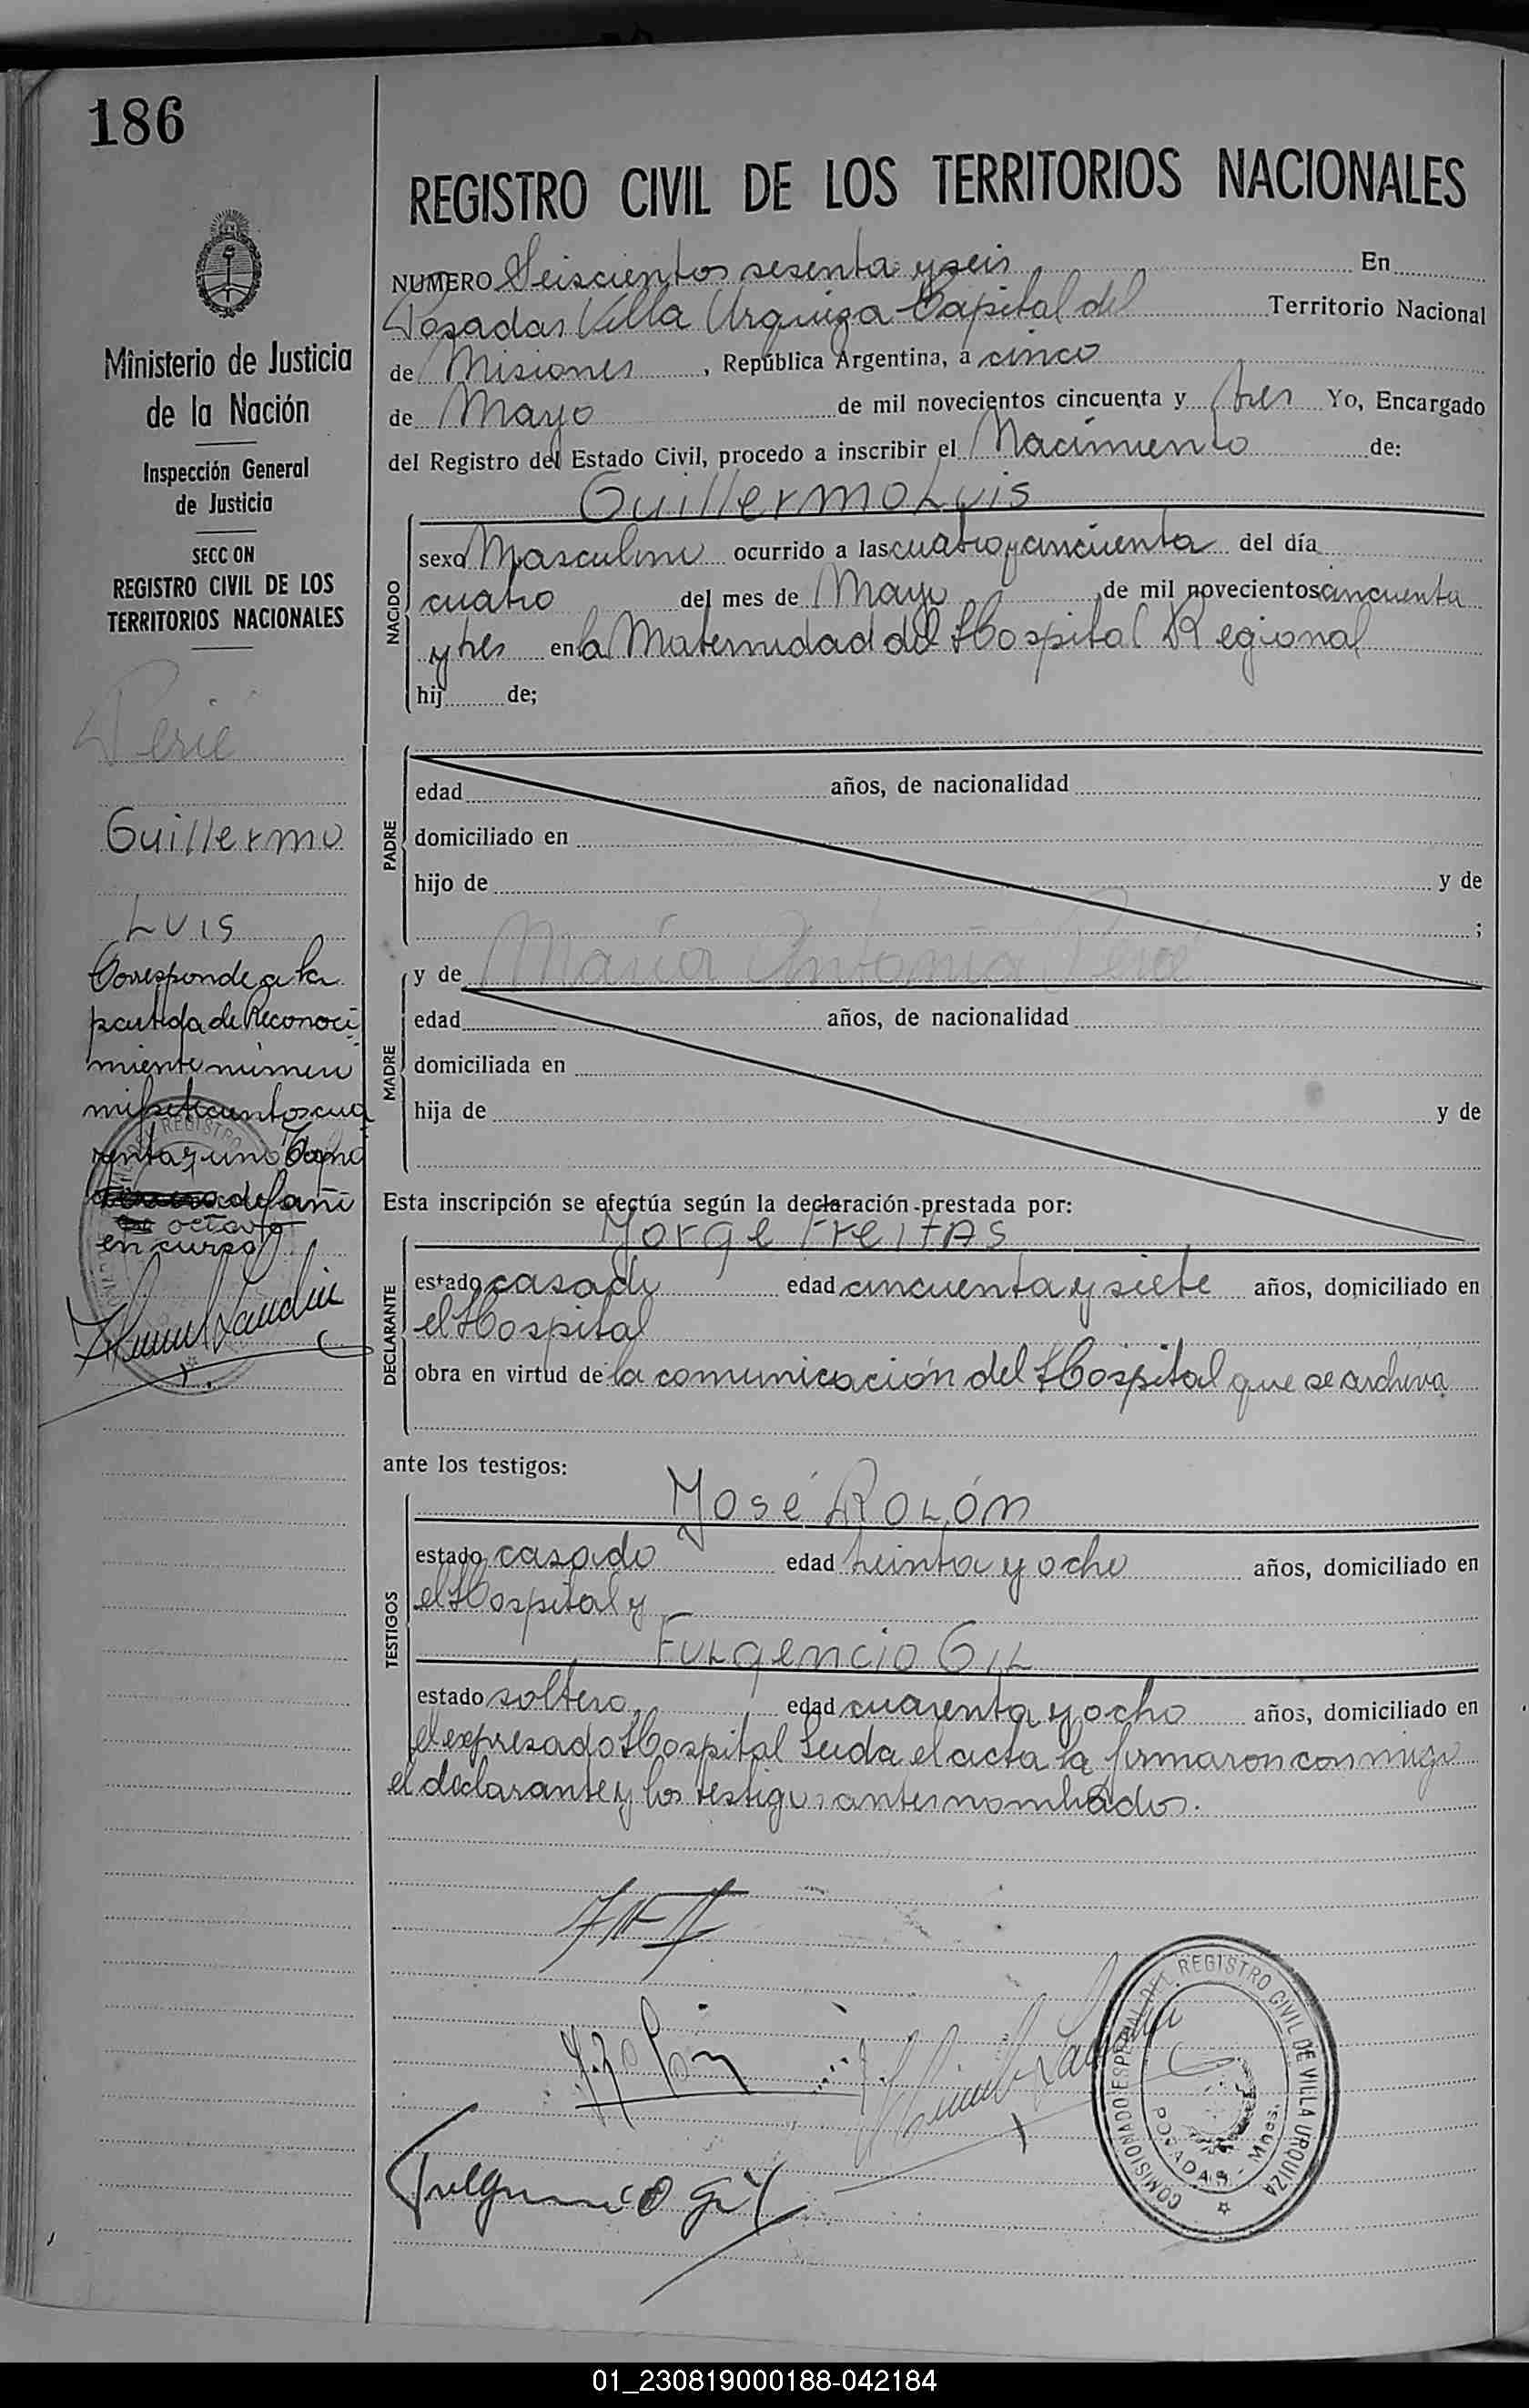 186
Ministerio de Justicia
de la Nación
Inspección General
de Justicia
SECC ON
REGISTRO CIVIL DE LOS
TERRITORIOS NACIONALES
Guillermo
Luis
Corresponde a la
partida de Reconoci
miento número
mil setecientos cua
renta y uno Tomo
del año
octavo
en curso
REGISTRO CIVIL DE LOS TERRITORIOS NACIONALES
NUMERO Seiscientos sesenta y seis En
Posadas Villa Urquiza Capital del Territorio Nacional
de Misiones, República Argentina, a cinco
de Mayo de mil novecientos cincuenta y tres Yo, Encargado
del Registro del Estado Civil, procedo a inscribir el Nacimiento de:
Guillermo Luis
NACIDO
sexo Masculino ocurrido a las cuatro y cincuenta del día
cuatro del mes de Mayo de mil novecientos cincuenta
y tres en la Maternidad del Hospital Regional
hij de;
PADRE
edad años, de nacionalidad
domiciliado en
hijo de y de
;
MADRE
y de María Antonia
edad años, de nacionalidad
domiciliada en
hija de y de
Esta inscripción se efectúa según la declaración prestada por:
Jorge Freitas
DECLARANTE
estado casado edad cincuenta y siete años, domiciliado en
el Hospital
obra en virtud de la comunicación del Hospital que se archiva
ante los testigos:
José Rolón
TESTIGOS
estado casado edad treinta y ocho años, domiciliado en
el Hospital y
Fulgencio Gil
estado soltero edad cuarenta y ocho años, domiciliado en
el expresado Hospital Leida el acta la firmaron conmigo
el declarante y los testigos antes nombrados.
J. Rolón
Fulgencio Gil
COMISIONADO ESPECIAL DEL REGISTRO CIVIL DE VILLA URQUIZA
POSADAS - Mnes.
01_230819000188-042184